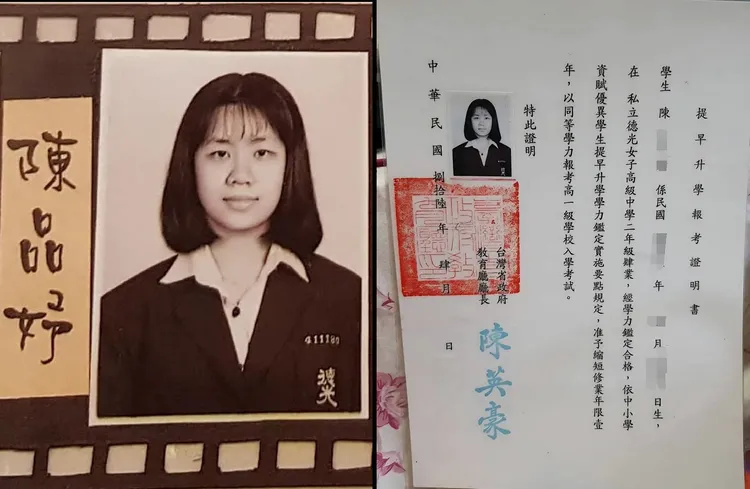 陳品妤
411180
德光
提早升學報考證明書
學生 陳 係民國 年 月 日生，
在 私立德光女子高級中學二年級肄業，經學力鑑定合格，依中小學
資賦優異學生提早升學學力鑑定實施要點規定，准予縮短修業年限壹
年，以同等學力報考高一級學校入學考試。
特此證明
台灣省政府
教育廳廳長
陳英豪
中華民國捌拾陸年肆月 日